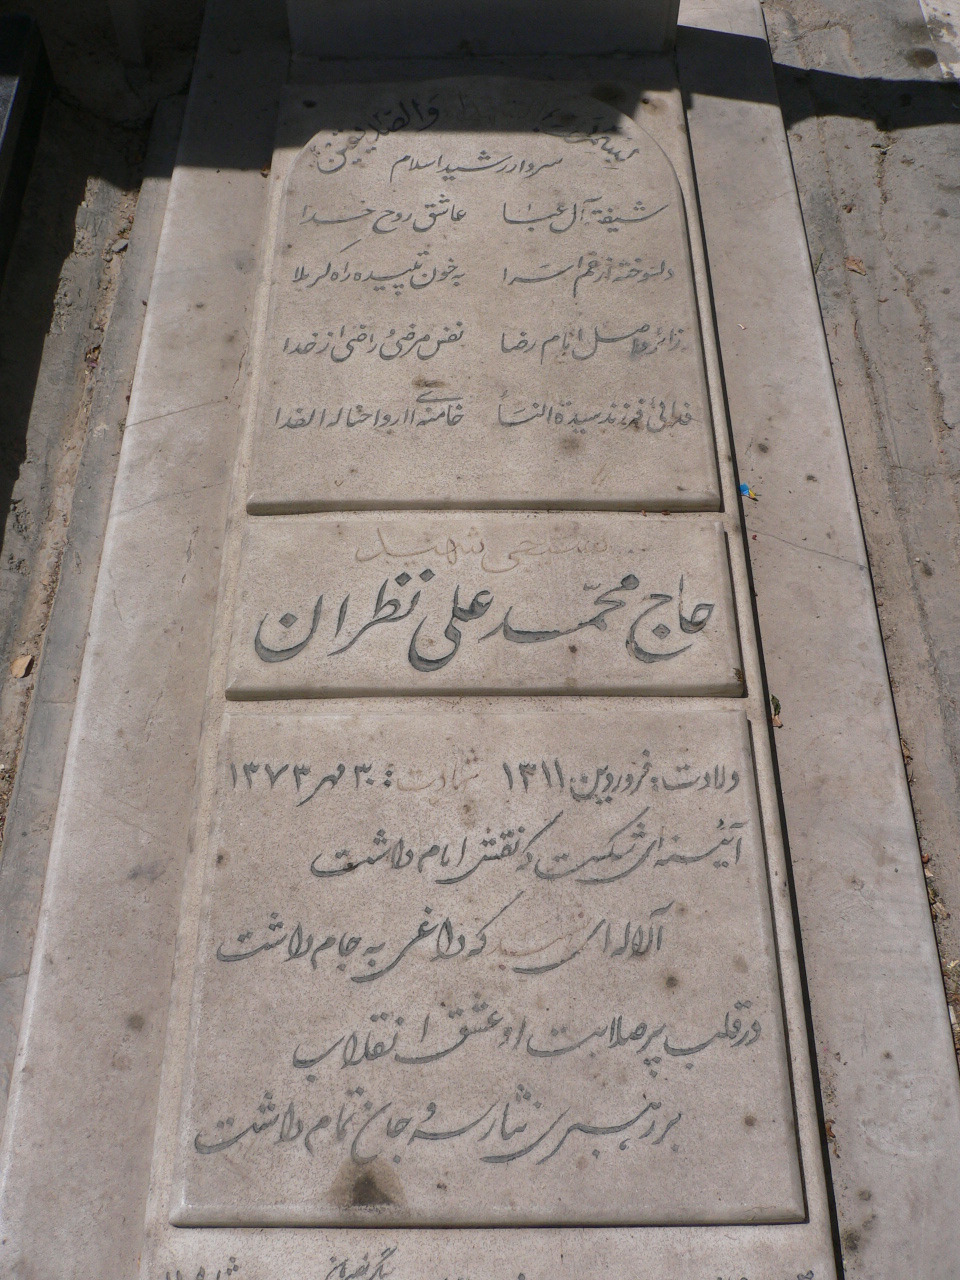 والصدیقین
سردار رشید اسلام
شیفته آل عبا عاشق روح خدا
دلسوخته از غم اسرا به خون تپیده راه کربلا
زائر امام رضا نفس مرضی و راضی از خدا
فدائی فرزند سیدة النسأ خامنه ای ارواحنا له الفدا
شهید
حاج محمد علی نظران
ولادت: فروردین ۱۳۱۱ شهادت: ۳۰ مهر ۱۳۷۳
آئینه ای شکست که نقش امام داشت
آلاله ای که داغی به جام داشت
در قلب پر صلابت او عشق انقلاب
بر رهبری نثار سر و جان تمام داشت